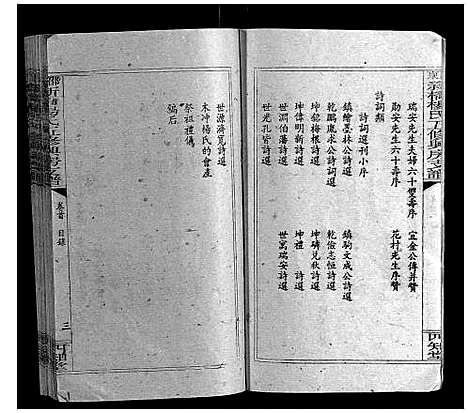 瑞安先生夫婦六十雙壽序
宜金公傳并贊
勛安先生六十壽序
花村先生序贊
詩詞類
詩詞選刊小序
鎮繪墨林公詩選
鎮駒文成公詩選
乾鵬康求公詩詞選
乾儉志恒詩選
坤銘梅根詩選
坤璘兑秋詩選
坤偉明新詩選
坤禮 詩選
世潤伯藩詩選
世寓瑞安詩選
世光孔皆詩選
世源濟覓詩選
木冲楊氏的會産
祭祖禮儀
編后
卷首 目錄
三
四知堂